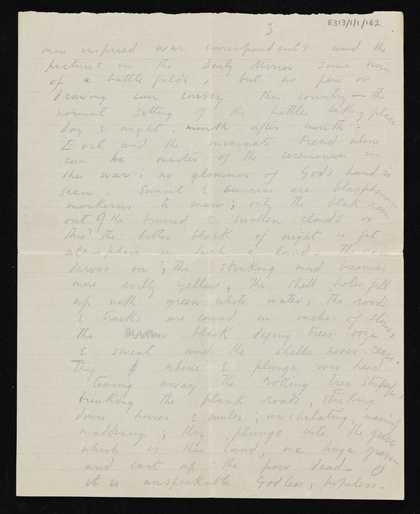 3
E313/1/1/162
more inspired war correspondents and the
pictures in the Daily Mirror some
of a battlefield; but no pen or
drawing can convey this country — the
normal setting of the battles taking place
day & night, month after month.
Evil and the incarnate fiend alone
can be master of the ceremonies in
this war: no glimmer of God's hand is
seen. Sunset & sunrise are blasphemous
mockeries to man; only the black rain
out of the bruised & swollen clouds or
thro' the bitter black of night is fit
atmosphere in such a land. The rain
drives on; the stinking mud becomes
more evilly yellow, the shell holes fill
up with green white water, the roads
& tracks are covered in inches of slime,
the black dying trees ooze
& sweat and the shells never cease.
They whine & plunge over head
tearing away the rotting tree stumps,
breaking the plank roads, striking
down horses & mules; annihilating, maiming
maddening; they plunge into the grave
which is this land, one huge grave
and cast up the poor dead. O
it is unspeakable, Godless, hopeless.